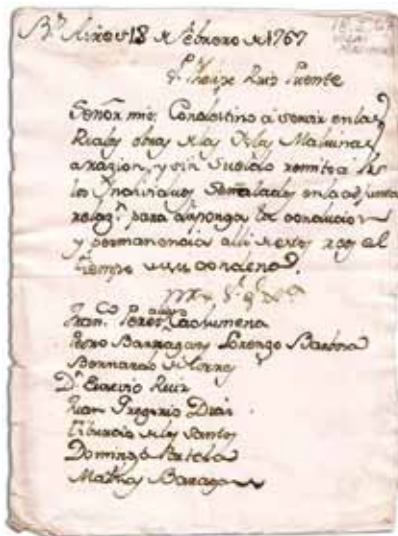 Bs Aires 18 de Febrero de 1767
Dn Phelipe Ruiz Puente
Señor mio: Con destino a servir en las
Reales obras de las Islas Malvinas
a razion, y sin sueldo remito a
los Individuos señalados en la adjunta
relazn para disponga la conduccion
y permanencia alli de estos por el
tiempo de su condena.
Franco Perez
Pedro Barragan Lorenzo Barbosa
Bernardo de Torres
Dn Eusevio Ruiz
Juan Gregorio Diaz
Tiburcio de los Santos
Domingo Portela
Mathias Baragan